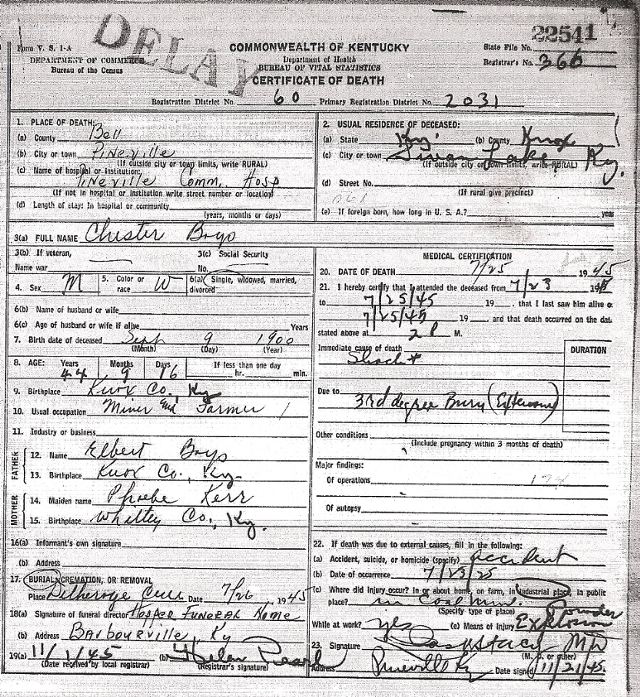 DELAY
Form V. S. 1-A
DEPARTMENT OF COMMERCE
Bureau of the Census
COMMONWEALTH OF KENTUCKY
Department of Health
BUREAU OF VITAL STATISTICS
CERTIFICATE OF DEATH
State File No. 22541
Registrar's No. 366
Registration District No. 60 Primary Registration District No. 2031
1. PLACE OF DEATH:
(a) County Bell
(b) City or town Pineville
(If outside city or town limits, write RURAL)
(c) Name of hospital or institution:
Pineville Comm. Hosp
(If not in hospital or institution write street number or location)
(d) Length of stay: In hospital or community
(years, months or days)
2. USUAL RESIDENCE OF DECEASED:
(a) State Ky. (b) County Knox
(c) City or town Swan Lake, Ky.
(If outside city or town limits, write RURAL)
(d) Street No.
(If rural give precinct)
(e) If foreign born, how long in U. S. A.? years
3(a) FULL NAME Chester Bays
3(b) If veteran,
Name war
3(c) Social Security
No.
4. Sex M
5. Color or
race W
6(a) Single, widowed, married,
divorced
6(b) Name of husband or wife
6(c) Age of husband or wife if alive Years
7. Birth date of deceased Sept 9 1900
(Month) (Day) (Year)
8. AGE: Years Months Days If less than one day
44 9 16 hr. min.
9. Birthplace Knox Co., Ky
10. Usual occupation Miner and Farmer
11. Industry or business
FATHER
12. Name Elbert Bays
13. Birthplace Knox Co., Ky.
MOTHER
14. Maiden name Phoebe Kerr
15. Birthplace Whitley Co., Ky.
16(a) Informant's own signature
(b) Address
17. BURIAL, CREMATION, OR REMOVAL
Place Date 7/26 1945
18(a) Signature of funeral director Hopper Funeral Home
(b) Address Barbourville, Ky
19(a) 11/1/45 (b)
(Date received by local registrar) (Registrar's signature)
MEDICAL CERTIFICATION
20. DATE OF DEATH 7/25 1945
21. I hereby certify that I attended the deceased from 7/23 19
to 7/25/45 19 , that I last saw him alive on
7/25/45 19 , and that death occurred on the date
stated above at 2 P M.
DURATION
Immediate cause of death
Shock
Due to 3rd degree Burn
Other conditions
(Include pregnancy within 3 months of death)
Major findings:
Of operations
Of autopsy
22. If death was due to external causes, fill in the following:
(a) Accident, suicide, or homicide (specify) accident
(b) Date of occurrence 7/23/25
(c) Where did injury occur? In or about home, on farm, in industrial place, in public
place? in Coal mine
(Specify type of place)
While at work? yes (e) Means of injury Powder Explosion
23. Signature Stacy MD
(M. D. or other)
Address Pineville Ky Date signed 11/21/45